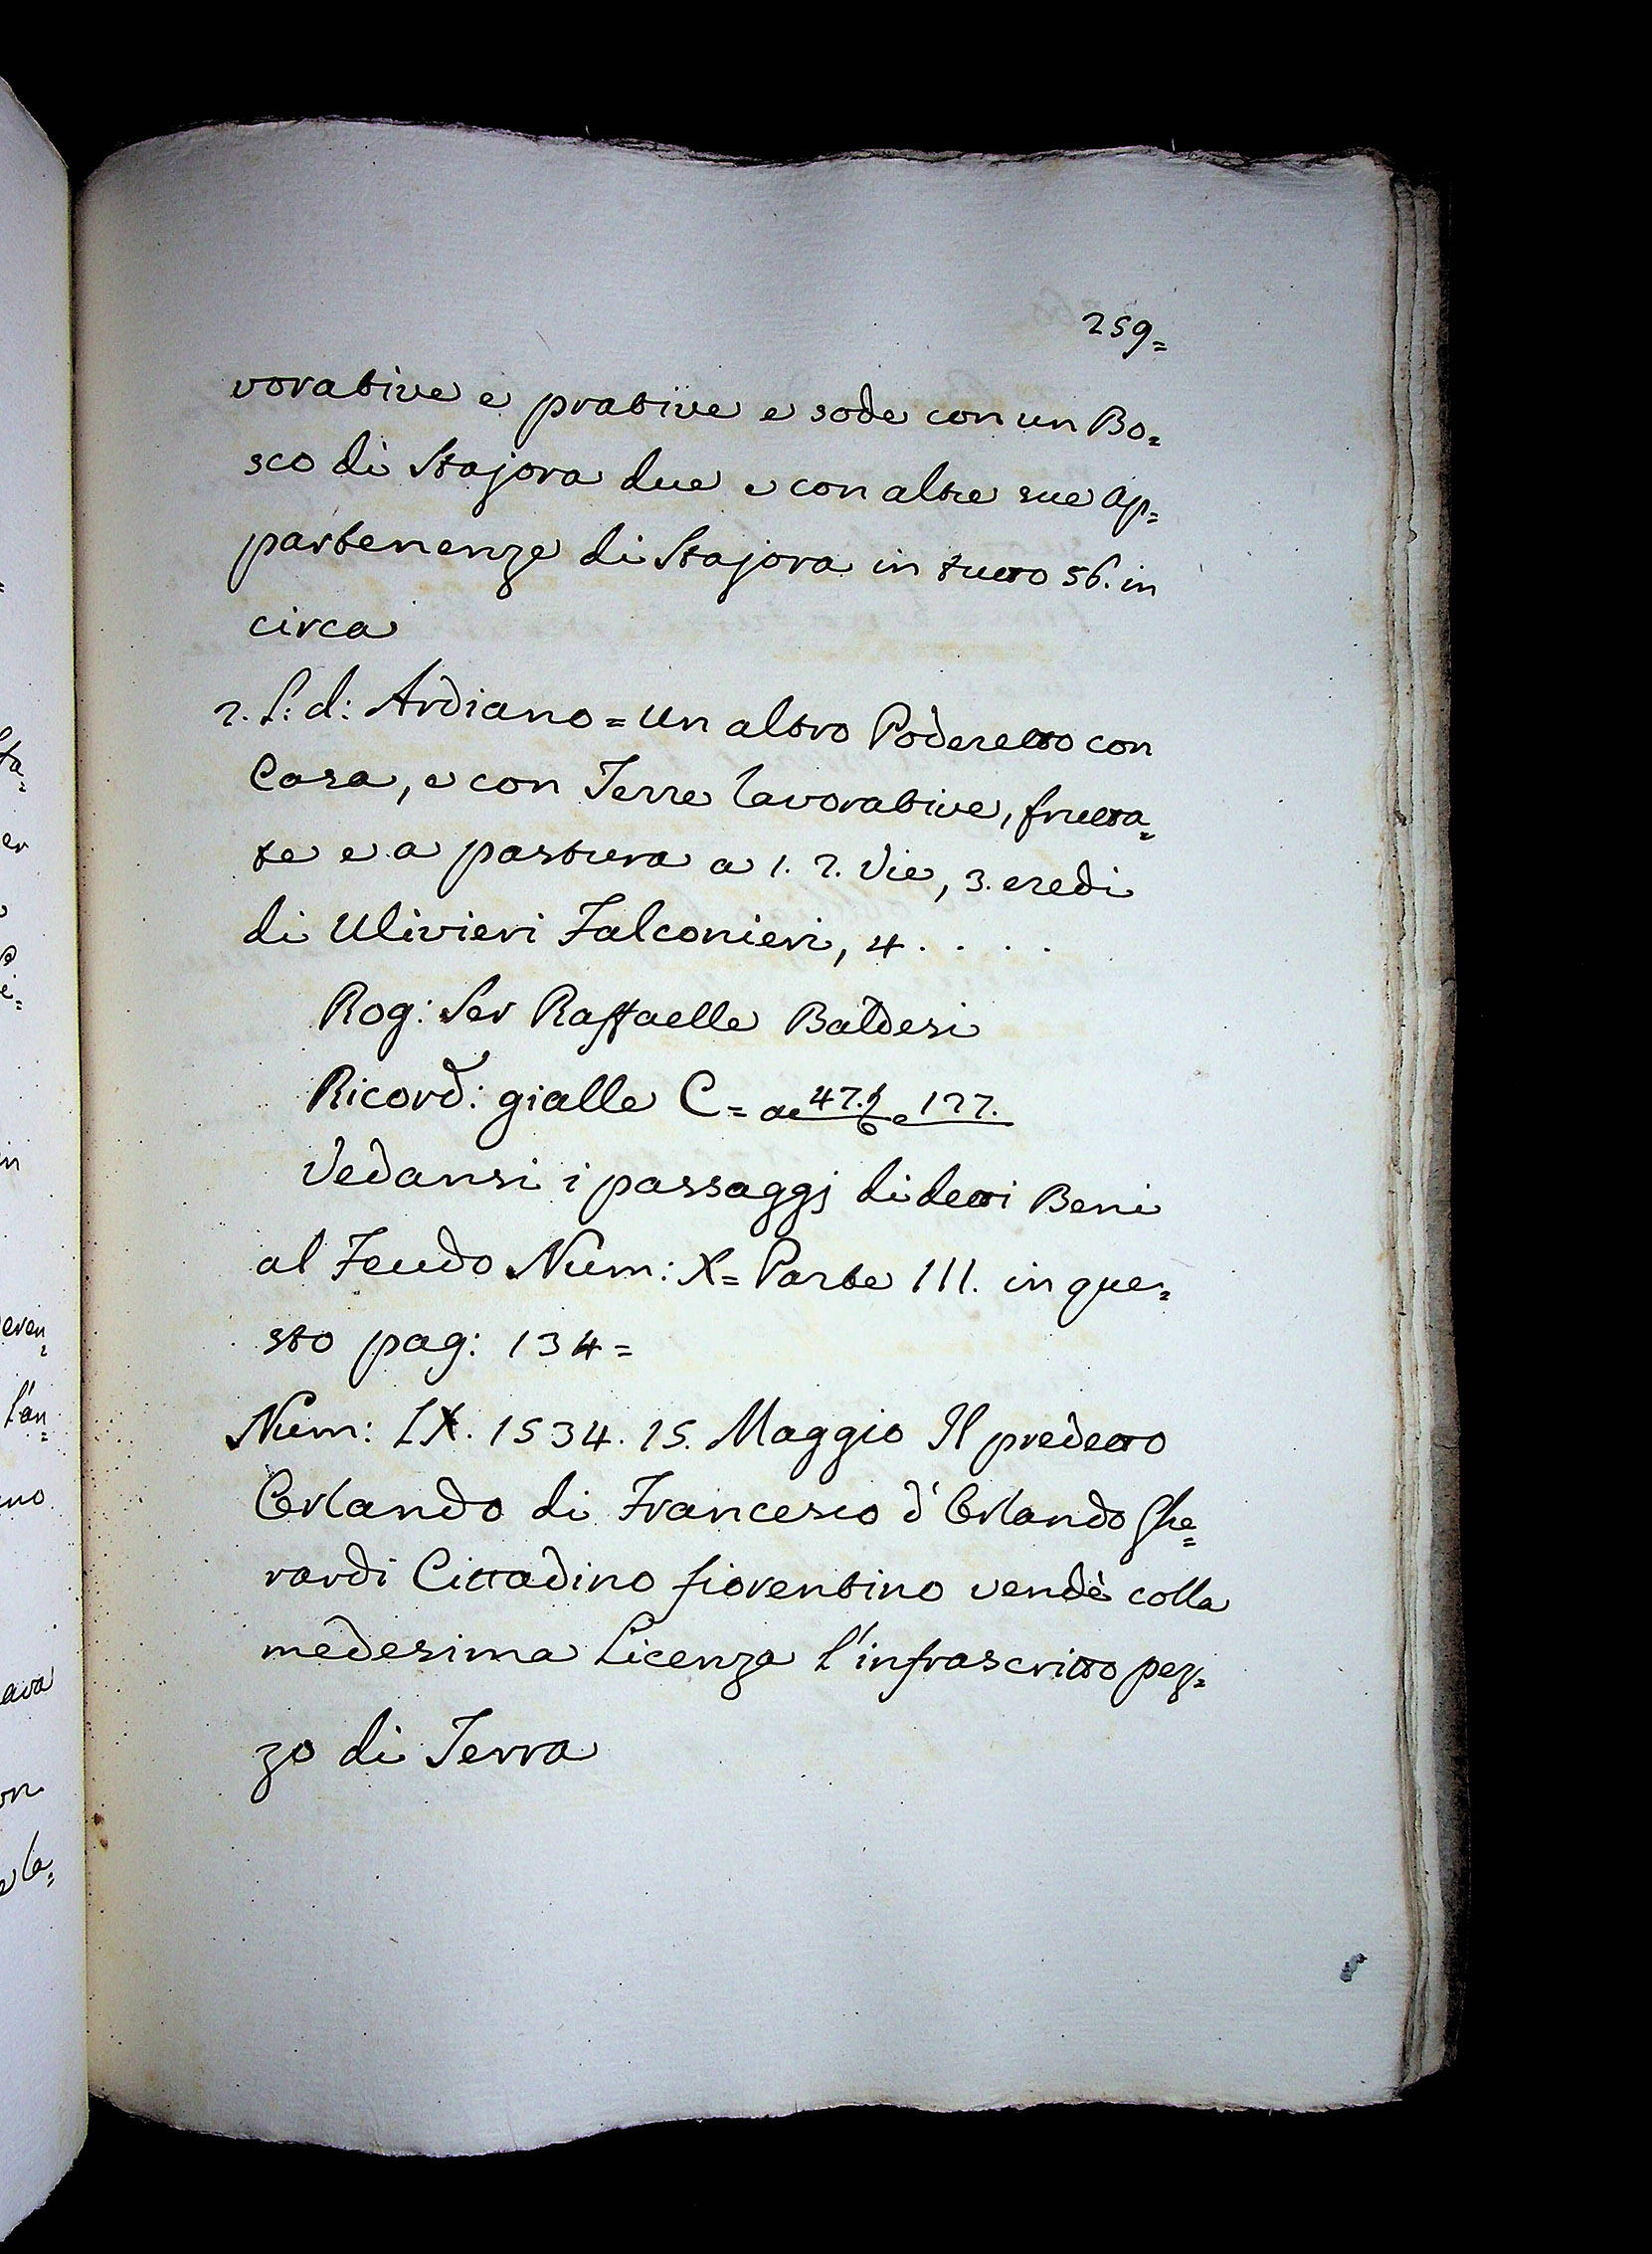 259=
vorative e prative e sode con un Bo=
sco di Stajora due e con altre sue ap=
partenenze di Stajora in tutto 56. in
circa
2. S: d: Ardiano = Un altro Poderetto con
Casa, e con Terre lavorative, frutta=
te e a pastura a 1. 2. Vie, 3. eredi
di Ulivieri Falconieri, 4 . . . .
Rog: Ser Raffaelle Baldesi
Ricord: gialle C = a 47. e 127.
Vedansi i passaggj di detti Beni
al Feudo Num: X = Parte III. in que=
sto pag: 134 =
Num: IX. 1534. 15. Maggio Il predetto
Orlando di Francesco d'Orlando Ghe=
rardi Cittadino fiorentino vendè colla
medesima Licenza l'infrascritto pez=
zo di Terra